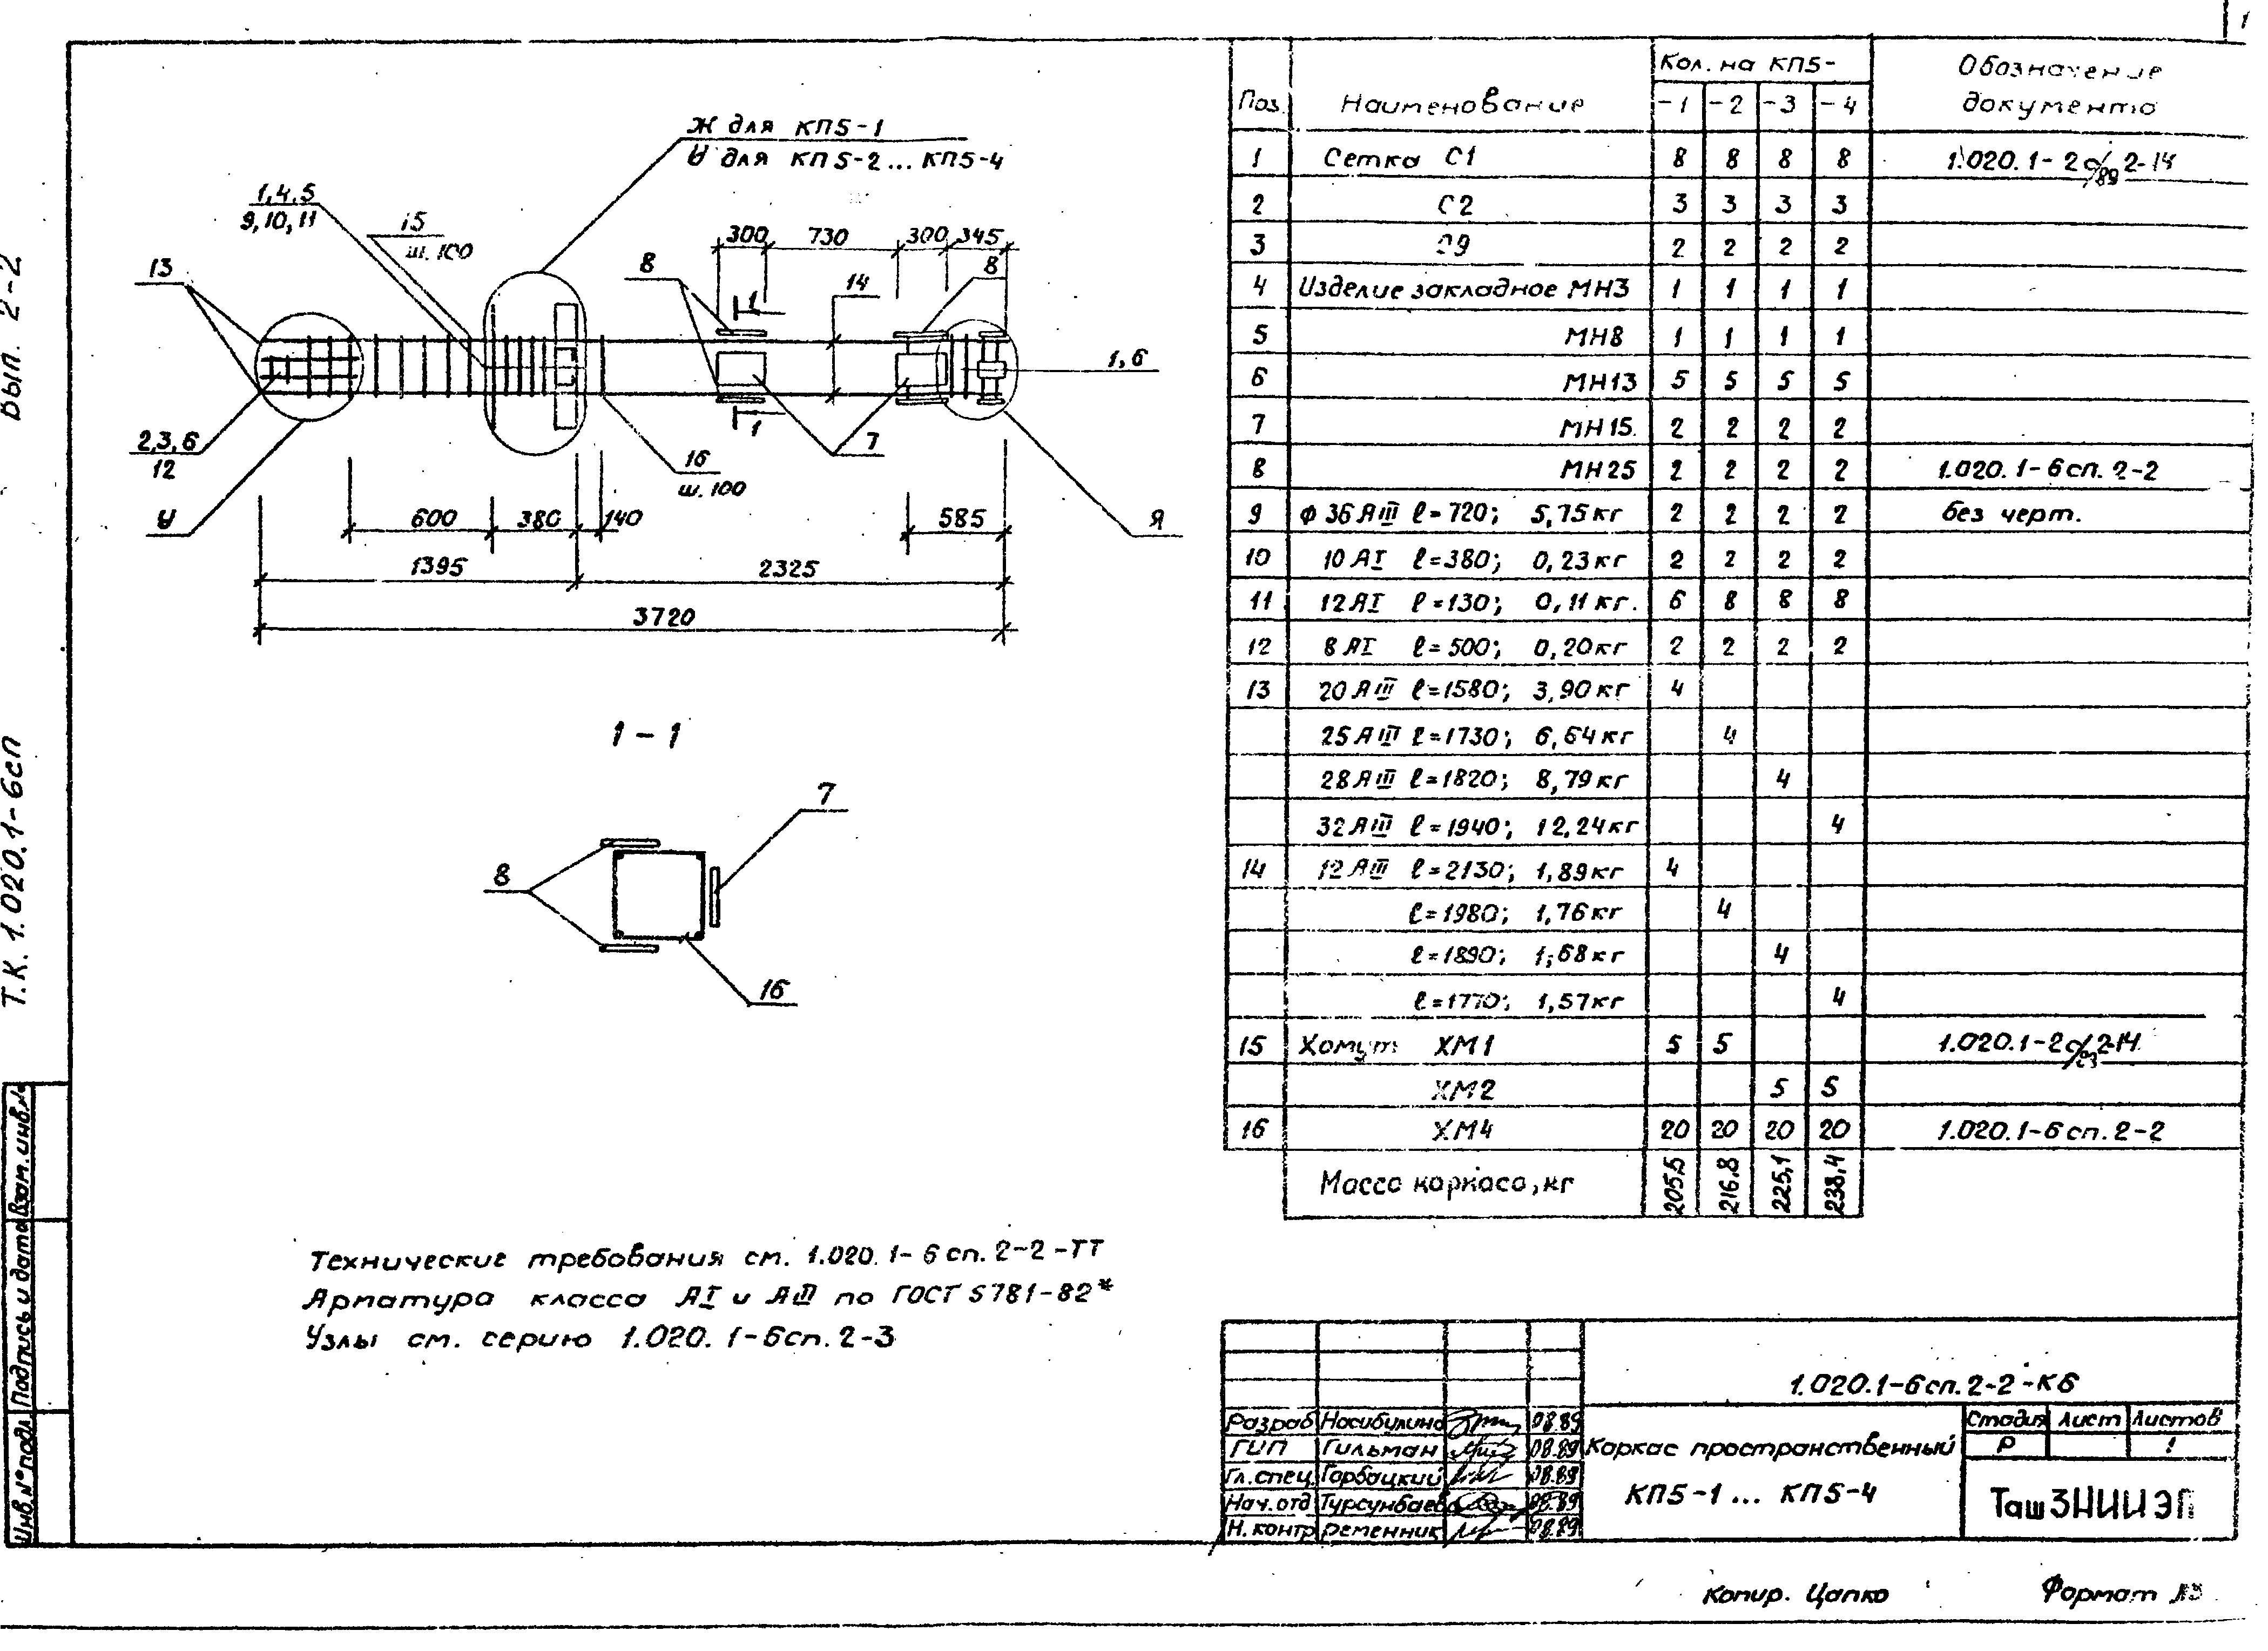 1
Вып. 2-2
Т.К. 1.020.1-6сп
Ж для КП5-1
И для КП5-2... КП5-4
1,4,5
9,10,11
15
ш. 100
13
8
300
730
300
345
8
1
14
1,6
2,3,6
12
И
16
ш. 100
1
7
Я
600
380
140
585
1395
2325
3720
1-1
7
8
16
Технические требования см. 1.020.1-6сп.2-2-ТТ
Арматура класса АI и АIII по ГОСТ 5781-82*
Узлы см. серию 1.020.1-6сп.2-3
Поз. Наименование Кол. на КП5- Обозначение документа
-1 -2 -3 -4
1 Сетка С1 8 8 8 8
2 С2 3 3 3 3
3 С9 2 2 2 2
4 Изделие закладное МН3 1 1 1 1
5 МН8 1 1 1 1
6 МН13 5 5 5 5
7 МН15 2 2 2 2
8 МН25 2 2 2 2 1.020.1-6сп.2-2
9 ф 36 АIII ℓ=720; 5,75кг 2 2 2 2 без черт.
10 10 АI ℓ=380; 0,23кг 2 2 2 2
11 12 АI ℓ=130; 0,11кг. 6 8 8 8
12 8 АI ℓ=500; 0,20кг 2 2 2 2
13 20 АIII ℓ=1580; 3,90кг 4
25 АIII ℓ=1730; 6,64кг 4
28 АIII ℓ=1820; 8,79кг 4
32 АIII ℓ=1940; 12,24кг 4
14 12 АIII ℓ=2130; 1,89кг 4
ℓ=1980; 1,76кг 4
ℓ=1890; 1,68кг 4
ℓ=1770; 1,57кг 4
15 Хомут ХМ1 5 5
ХМ2 5 5
16 ХМ4 20 20 20 20 1.020.1-6сп.2-2
Масса каркаса, кг 205,5 216,8 225,1 238,4
1.020.1-6сп.2-2-К6
Разраб Насибулина 08.89
ГИП Гильман 08.89
Гл.спец. Горбацкий 08.89
Нач.отд Турсунбаев 08.89
Н.контр Ременник 08.89
Каркас пространственный
КП5-1... КП5-4
Стадия Лист Листов
Р 1
ТашЗНИИЭП
Инв.№подл. Подпись и дата Взам.инв.№
Копир. Цапко
Формат